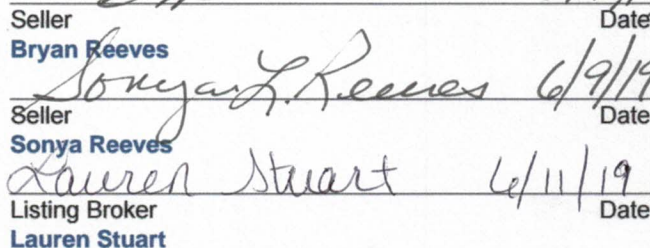 Seller Date
Bryan Reeves
Sonya L. Reeves 6/9/19
Seller Date
Sonya Reeves
Lauren Stuart 6/11/19
Listing Broker Date
Lauren Stuart